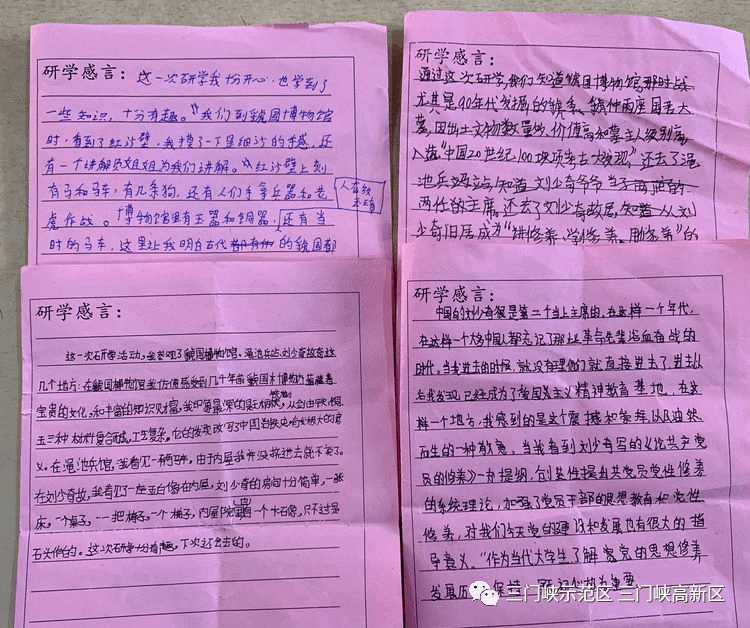 研学感言：这一次研学我十分开心，也学到了
一些知识，十分有趣。我们到虢国博物馆
时，看到了红沙壁，我摸了一下是细沙的手感，还
有一个讲解员姐姐为我们讲解。红沙壁上刻
有马和马车，有几条狗，还有人们手拿兵器和老
虎作战。博物馆里有玉器和铜器，还有当
时的马车，这里让我明白古代的虢国都
研学感言：
通过这次研学，我们知道虢国博物馆，那时战
尤其是90年代发掘的虢季、虢仲两座国君大
墓，因出土文物数量多、价值高和墓主人级别高
入选"中国20世纪100项考古大发现"，还去了渑
池兵站，知道刘少奇爷爷当了两任的
两任的主席，还去了刘少奇故居，知道从刘
少奇旧居成为"讲修养、学修养、用修养"的
研学感言：
这一次研学活动，我参观了虢国博物馆、渑池兵站刘少奇故居这
几个地方：在虢国博物馆我仿佛感受到几千年前虢国
宝贵的文化，和丰富的知识财富，我印象最深的是玉柄铁剑，从会由铁、铜、
玉三种材料复合而成，工艺复杂，它的发现改写了中国冶铁史，有极大的意
义。在渑池兵馆，我看见一辆马车，由于内屋我并没被进去就不变了。
在刘少奇故，我看见了一座玉白像在内屋，刘少奇的房间十分简单，一张
床，一个桌子，一把椅子，一个梯子，内屋院里有一个木石像，只不过是
石头作的。这次研学十分有趣，下次还去的。
研学感言：
中国的刘少奇很是第二个当上主席的，在这样一个年代，
在这样一个大多中国人都忘记了那让革命先辈浴血奋战的
时代。当我进去的时候，就没有理他们就直接进去了，进去以
后我发现已经成为了爱国主义精神教育基地，在这
样一个地方，我感到的是这个震撼和崇拜，以及油然
而生的一种敬意，当我看到刘少奇写的《论共产党
员的修养》一为提纲，创造性提出共党员党性修养
的系统理论，加强了党员干部的思想教育和党性
修养，对我们今天党的建设和发展也有很大的指
导意义。"作为当代大学生了解党员的思想修养
发展历
三门峡示范区 三门峡高新区